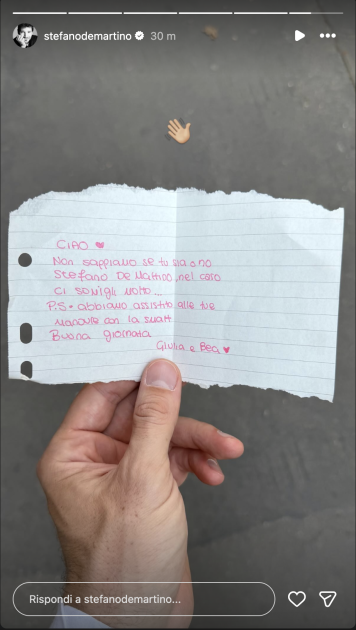 stefanodemartino 30 m
CIAO ♥
Non sappiamo se tu sia o no
Stefano De Martino, nel caso
ci somigli molto...
P.S. abbiamo assistito alle tue
manovre con la smart
Buona giornata
Giulia e Bea ♥
Rispondi a stefanodemartino...